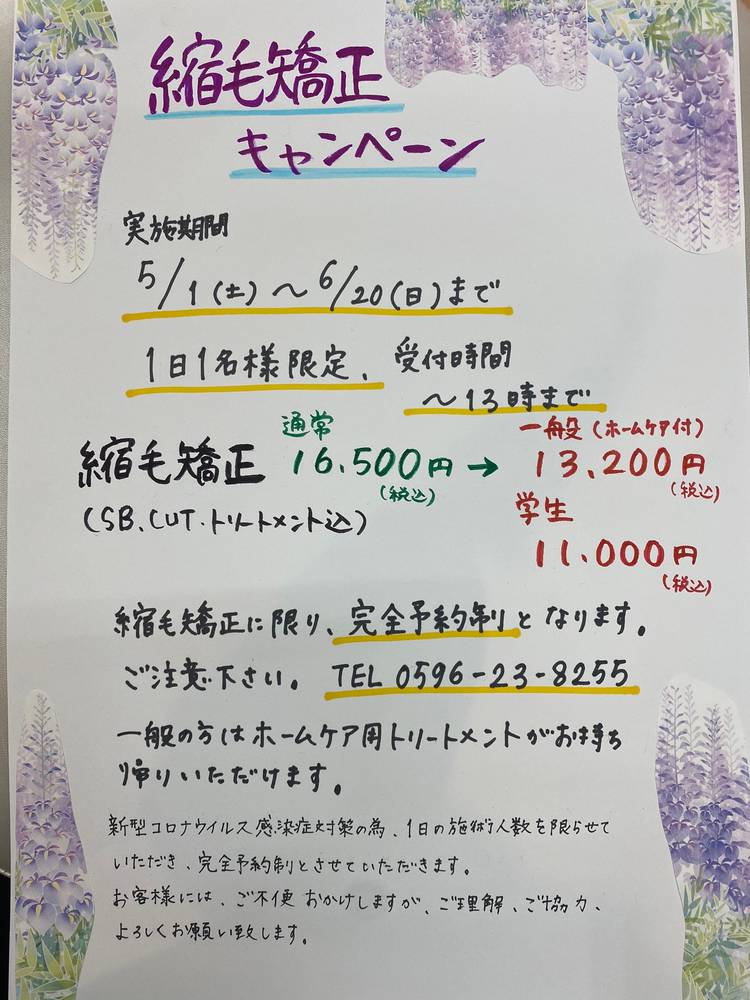 縮毛矯正
キャンペーン
実施期間
5/1(土)~6/20(日)まで
1日1名様限定、受付時間
~13時まで
縮毛矯正 通常 16.500円(税込) → 一般(ホームケア付) 13.200円(税込)
(SB、CUT・トリートメント込) 学生 11.000円(税込)
縮毛矯正に限り、完全予約制となります。
ご注意下さい。 TEL 0596-23-8255
一般の方はホームケア用トリートメントがお持ち
帰りいただけます。
新型コロナウイルス感染症対策の為、1日の施術人数を限らせて
いただき、完全予約制とさせていただきます。
お客様には、ご不便おかけしますが、ご理解、ご協力、
よろしくお願い致します。